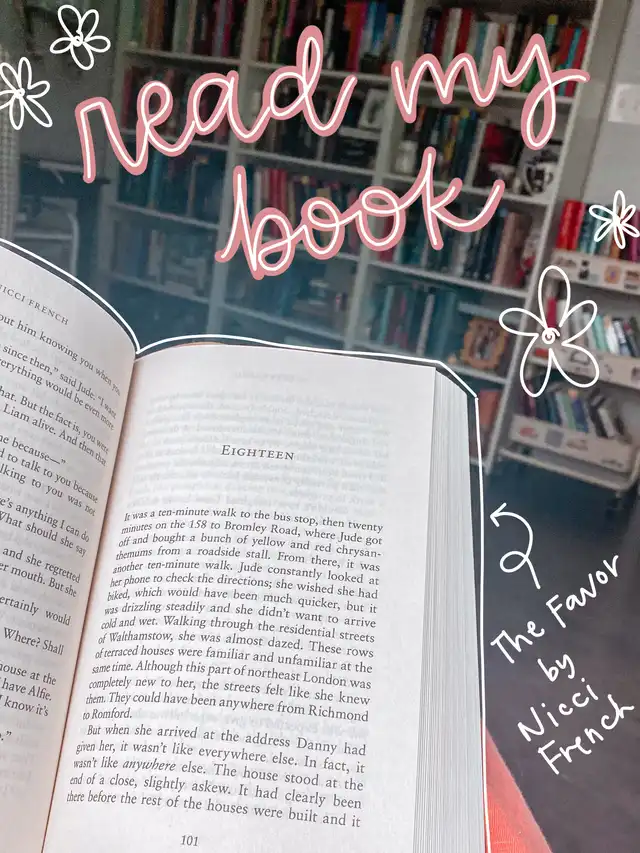 read my
book
NICCI FRENCH
out him knowing you when you
since then," said Jude. "I want
verything would be even more
hat. But the fact is, you were
Liam alive. And then that
e because—"
d to talk to you because
lking to you was not
e's anything I can do
What should she say
and she regretted
er mouth. But she
ertainly would
Where? Shall
ouse at the
have Alfie.
I know it's
EIGHTEEN
It was a ten-minute walk to the bus stop, then twenty
minutes on the 158 to Bromley Road, where Jude got
off and bought a bunch of yellow and red chrysan-
themums from a roadside stall. From there, it was
another ten-minute walk. Jude constantly looked at
her phone to check the directions; she wished she had
biked, which would have been much quicker, but it
was drizzling steadily and she didn't want to arrive
cold and wet. Walking through the residential streets
of Walthamstow, she was almost dazed. These rows
of terraced houses were familiar and unfamiliar at the
same time. Although this part of northeast London was
completely new to her, the streets felt like she knew
them. They could have been anywhere from Richmond
to Romford.
But when she arrived at the address Danny had
given her, it wasn't like everywhere else. In fact, it
wasn't like anywhere else. The house stood at the
end of a close, slightly askew. It had clearly been
there before the rest of the houses were built and it
101
The Favor
by
Nicci
French